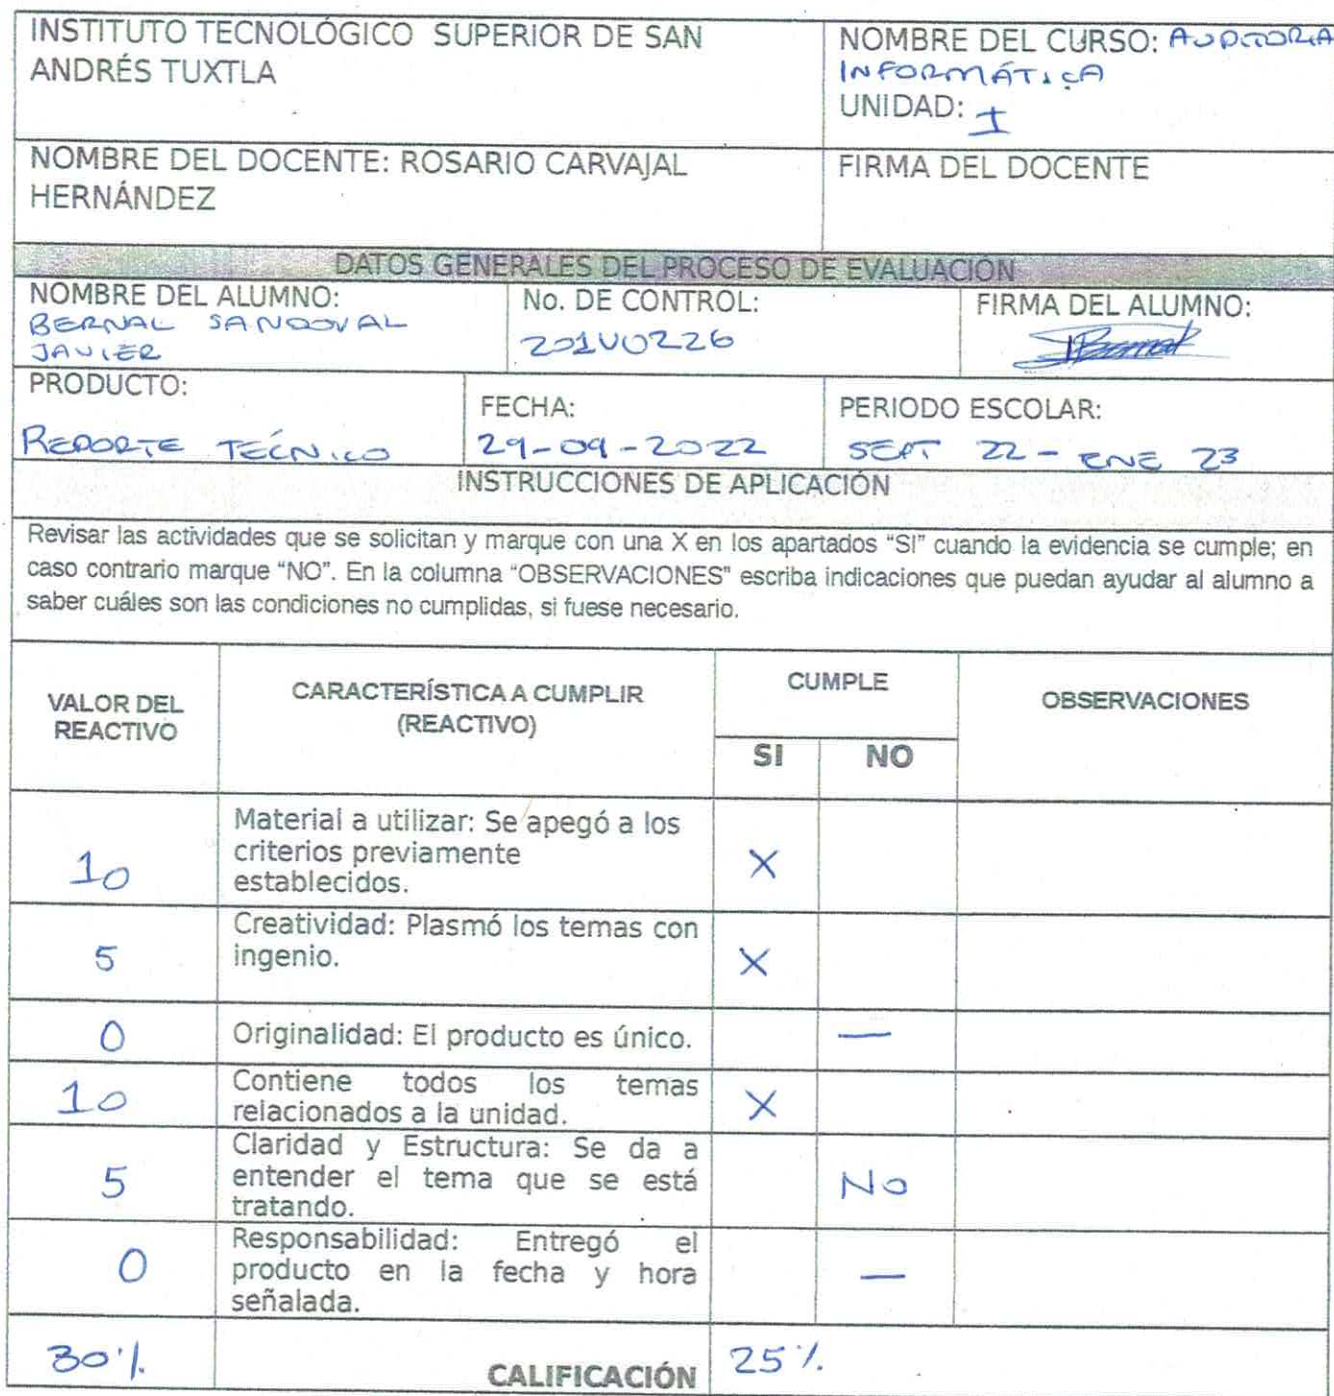 INSTITUTO TECNOLÓGICO SUPERIOR DE SAN
ANDRÉS TUXTLA
NOMBRE DEL CURSO: AUDITORIA
INFORMÁTICA
UNIDAD: I
NOMBRE DEL DOCENTE: ROSARIO CARVAJAL
HERNÁNDEZ
FIRMA DEL DOCENTE
DATOS GENERALES DEL PROCESO DE EVALUACIÓN
NOMBRE DEL ALUMNO:
BERNAL SANDOVAL
JAVIER
No. DE CONTROL:
201U0226
FIRMA DEL ALUMNO:
JBernal
PRODUCTO:
REPORTE TECNICO
FECHA:
29-09-2022
PERIODO ESCOLAR:
SEPT 22 - ENE 23
INSTRUCCIONES DE APLICACIÓN
Revisar las actividades que se solicitan y marque con una X en los apartados "SI" cuando la evidencia se cumple; en
caso contrario marque "NO". En la columna "OBSERVACIONES" escriba indicaciones que puedan ayudar al alumno a
saber cuáles son las condiciones no cumplidas, si fuese necesario.
VALOR DEL
REACTIVO
CARACTERÍSTICA A CUMPLIR
(REACTIVO)
CUMPLE
SI NO
OBSERVACIONES
10
Material a utilizar: Se apegó a los
criterios previamente
establecidos.
X
5
Creatividad: Plasmó los temas con
ingenio.
X
0
Originalidad: El producto es único.
—
10
Contiene todos los temas
relacionados a la unidad.
X
5
Claridad y Estructura: Se da a
entender el tema que se está
tratando.
No
0
Responsabilidad: Entregó el
producto en la fecha y hora
señalada.
—
30%
CALIFICACIÓN
25%